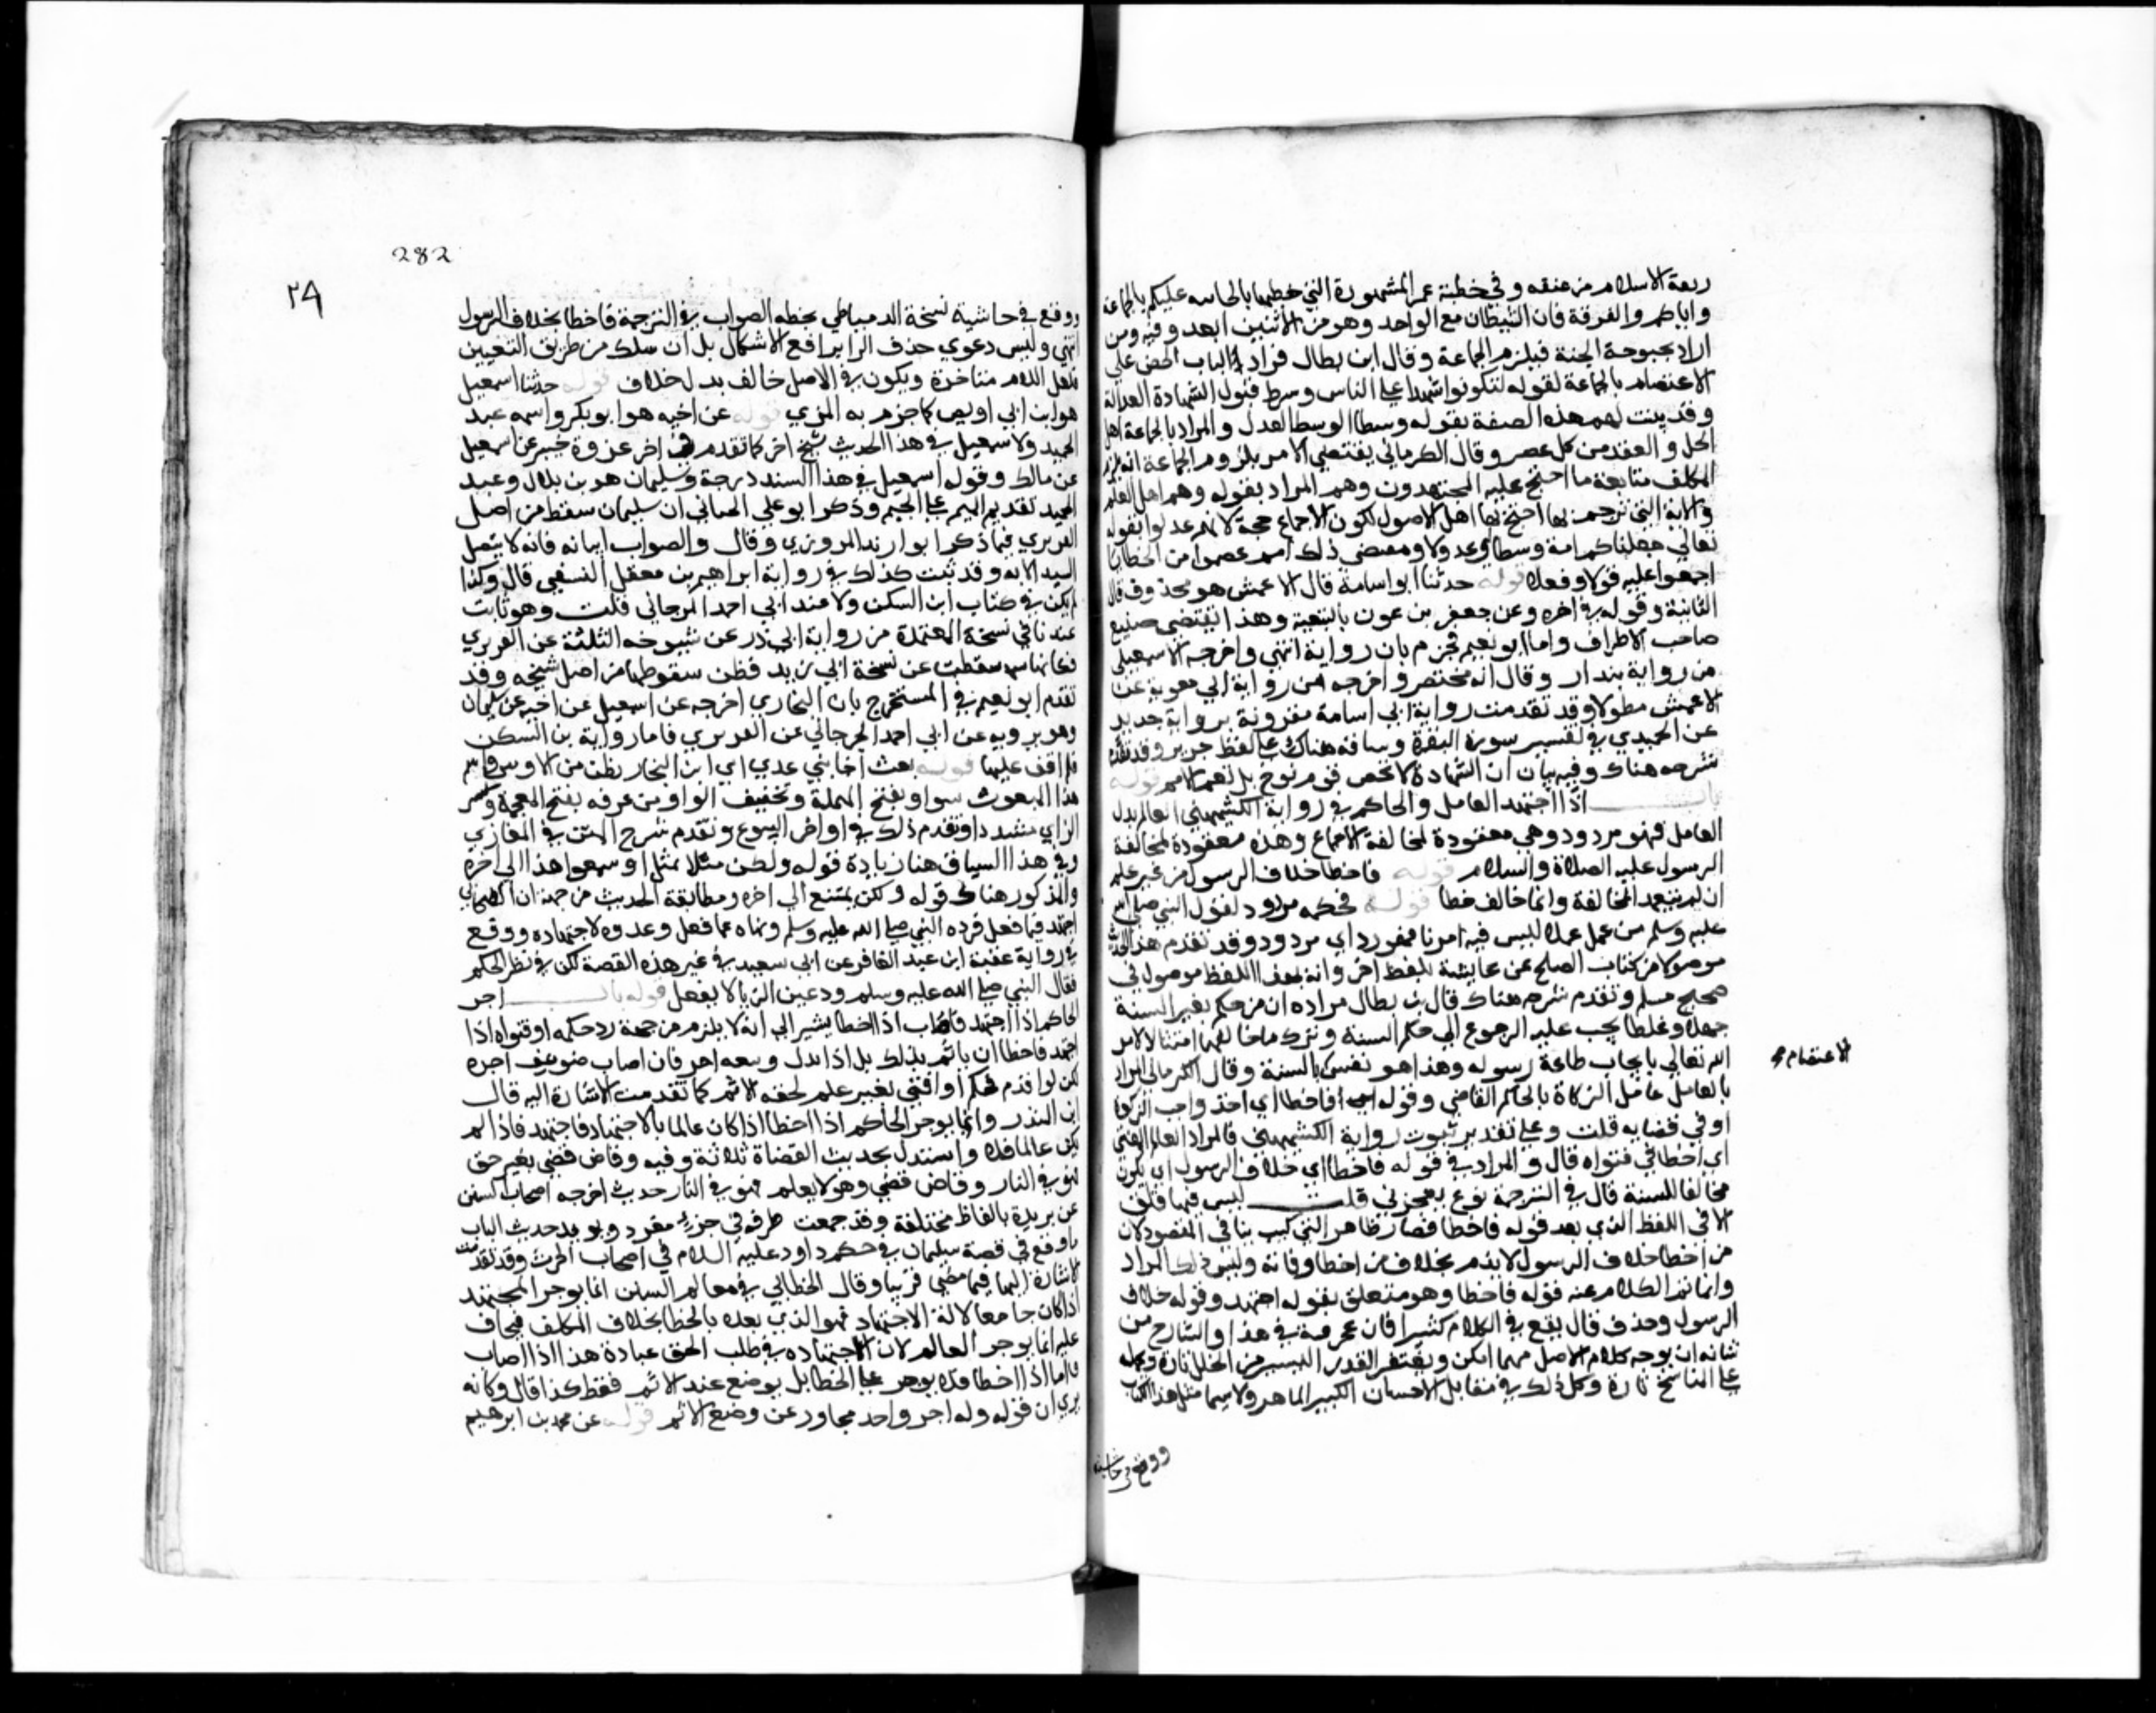 ربعة الاسلام من عنقه وفي خطبة عمر المشهورة التي خطبها بالجابيه عليكم بالجماعة
واياكم والفرقة فان الشيطان مع الواحد وهو من الاثنين ابعد وفيه ومن
اراد بحبوحة الجنة فيلزم الجماعة وقال ابن بطال مراد الباب الحض على
الاعتصام بالجماعة لقوله لتكونوا شهداء على الناس وشرط قبول الشهادة العدالة
وقد ثبتت لهم هذه الصفة بقوله وسطا الوسط العدل والمراد بالجماعة اهل
الحل والعقد من كل عصر وقال الكرماني يقتضي الامر بلزوم الجماعة انه يلزم
المكلف متابعة ما اجتمع عليه المجتهدون وهم المراد بقوله وهم اهل العلم
والاية التي ترجم بها احتج بها اهل الاصول لكون الاجماع حجة لانهم عدلوا بقوله
تعالى جعلناكم امة وسطا اي عدولا ومقتضى ذلك انهم عصموا من الخطا فيما
اجمعوا عليه قولا وفعلا قوله حدثنا ابو اسامة قال الاعمش هو بحذف قال
الثانية وقوله في اخره وعن جعفر بن عون بالتبعية وهذا يقتضي صنيع
صاحب الاطراف واما ابو نعيم فجزم بان رواية انتهى واخرجه الاسمعيلي
من رواية بندار وقال انه مختصر واخرجه من رواية ابي معوية عن
الاعمش مطولا وقد تقدمت رواية ابي اسامة مقرونة برواية جرير
عن الحميدي في تفسير سورة البقرة وساقه هناك على لفظ جرير وقد تقدم
شرحه هناك وفيه بيان ان الشهادة لا تخص قوم نوح بل تعم الامم قوله
باب اذا اجتهد العامل والحاكم في رواية الكشميهني العالم بدل
العامل فهو مردود وهي معقودة لمخالفة الاجماع وهذه معقودة لمخالفة
الرسول عليه الصلاة والسلام قوله فاخطا خلاف الرسول من غير علم
ان لم يتعمد المخالفة وانما خالف خطا قوله فحكمه مردود لقول النبي صلى الله
عليه وسلم من عمل عملا ليس فيه امرنا فهو رد اي مردود وقد تقدم هذا الحديث
موصولا من كتاب الصلح عن عايشة بلفظ اخر وانه بهذا اللفظ موصول في
صحيح مسلم وتقدم شرحه هناك قال بن بطال مراده ان من حكم بغير السنة
جهلا وغلطا يجب عليه الرجوع الى حكم السنة وترك ما خالفها امتثالا لامر
الله تعالى بايجاب طاعة رسوله وهذا هو نفس بالسنة وقال الكرماني المراد
بالعامل عامل الزكاة بالحاكم القاضي وقوله فاخطا اي اخذ واجب الزكاة
او في قضايه قلت وعلى تقدير ثبوت رواية الكشميهني فالمراد العالم المفتي
اي اخطا في فتواه قال والمراد في قوله فاخطا اي خلاف الرسول اي يكون
مخالفا للسنة قال في الترجمة نوع بعجرفي قلت ليس فيها قلق
الا في اللفظ الذي بعد قوله فاخطا فصار ظاهر التركيب ينافي المقصود لان
من اخطا خلاف الرسول لا يذم بخلاف من اخطا وفاته وليس ذلك المراد
وانما تم الكلام عند قوله فاخطا وهو متعلق بقوله اجتهد وقوله خلاف
الرسول وحذف قال يقع في الكلام كثيرا فاي عجرفية في هذا والشارح من
شانه ان يوجه كلام الاصل مهما امكن ويغتفر القدر اليسير من الخلل تارة ويحمله
على الناسخ تارة وكل ذلك في مقابل الاحسان الكبير الماهر ولا سيما مثل هذا الكتاب
ووقع في حاشية
الاعتصام
282
ووقع في حاشية نسخة الدمياطي بخطه الصواب في الترجمة فاخطا بخلاف الرسول
انتهى وليس دعوى حذف الرا برافع الاشكال بل ان سلك من طريق التغيير
فلعل اللام متاخرة ويكون في الاصل خالف بدل خلاف قوله حدثنا اسمعيل
هو ابن ابي اويس كما جزم به المزي قوله عن اخيه هو ابو بكر واسمه عبد
الحميد ولاسمعيل في هذا الحديث شيخ اخر كما تقدم في اخر غزوة خيبر عن اسمعيل
عن مالك وقوله اسمعيل في هذا السند درجة وسليمان هو بن بلال وعبد
المجيد تقديم الميم على الجيم وذكر ابو علي الجياني ان سليمان سقط من اصل
الفربري فيما ذكر ابو زيد المروزي وقال والصواب اثباته فانه لا يتصل
السند الا به وقد ثبت كذلك في رواية ابراهيم بن معقل النسفي قال وكذا
لم يكن في كتاب ابن السكن ولا عند ابي احمد الجرجاني قلت وهو ثابت
عندنا في نسخة المعتمدة من رواية ابي ذر عن شيوخه الثلثة عن الفربري
سقطت عن نسخة ابي زيد فظن سقوطها من اصل شيخه وقد
تقدم ابو نعيم في المستخرج بان البخاري اخرجه عن اسمعيل عن اخيه عن سليمان
وهو يرويه عن ابي احمد الجرجاني عن الفربري فاما رواية بن السكن
فلم اقف عليها قوله بعث اخا بني عدي اي ابن النجار بطن من الاوس واسم
هذا المبعوث سواد بفتح المهملة وتخفيف الواو بن غزية بفتح المعجمة وكسر
الزاي مشددا وتقدم ذلك في اواخر البيوع وتقدم شرح المتن في المغازي
وفي هذا السياق هنا زيادة قوله ولكن مثلا بمثل او بيعوا هذا الى اخره
والمذكور هناك قوله ولكن يمتنع الى اخره ومطابقة الحديث من جهة ان الصحابي
اجتهد فيما فعل فرده النبي صلى الله عليه وسلم ونهاه عما فعل وعذره لاجتهاده ووقع
في رواية عقبة ابن عبد الغافر عن ابي سعيد في غير هذه القصة لكن في نظر الحكم
فقال النبي صلى الله عليه وسلم وذعين الربا لا تفعل قوله باب اجر
الحاكم اذا اجتهد فاصاب اذا اخطا يشير الى انه لا يلزم من جهة رد حكمه او فتواه اذا
اجتهد فاخطا ان ياثم بذلك بل اذا بذل وسعه اجر فان اصاب ضوعف اجره
لكن لو اقدم فحكم او افتى بغير علم لحقه الاثم كما تقدمت الاشارة اليه قال
ابن المنذر وانما يوجر الحاكم اذا اخطا اذا كان عالما بالاجتهاد فاجتهد فاذا لم
يكن عالما فلا واستدل بحديث القضاة ثلاثة وفيه وقاض قضى بغير حق
فهو في النار وقاض قضى وهو لا يعلم فهو في النار حديث اخرجه اصحاب السنن
عن بريدة بالفاظ مختلفة وقد جمعت طرقه في جزء مفرد ويويد حديث الباب
ما وقع في قصة سليمان في حكم داود عليه السلام في اصحاب الحرث وقد تقدمت
الاشارة اليها فيما مضى قريبا وقال الخطابي في معالم السنن انما يوجر المجتهد
اذا كان جامعا لالة الاجتهاد فهو الذي نعذره بالخطا بخلاف المتكلف فيخاف
عليه انما يوجر العالم لان اجتهاده في طلب الحق عبادة هذا اذا اصاب
فاما اذا اخطا فلا يوجر على الخطا بل يوضع عنه الاثم فقط كذا قال وكانه
يرى ان قوله وله اجر واحد مجاوز عن وضع الاثم قوله عن محمد بن ابرهيم